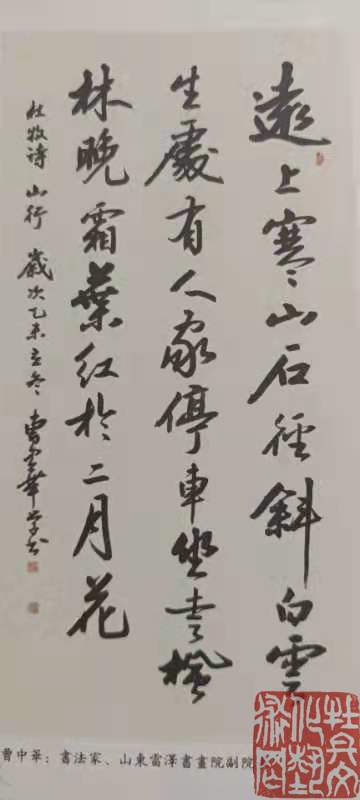 遠上寒山石徑斜白雲
生處有人家停車坐愛楓
林晚霜葉紅於二月花
杜牧诗 山行 歲次乙未立冬 曹雲華学书
曹中華：書法家、山東雷澤書畫院副院